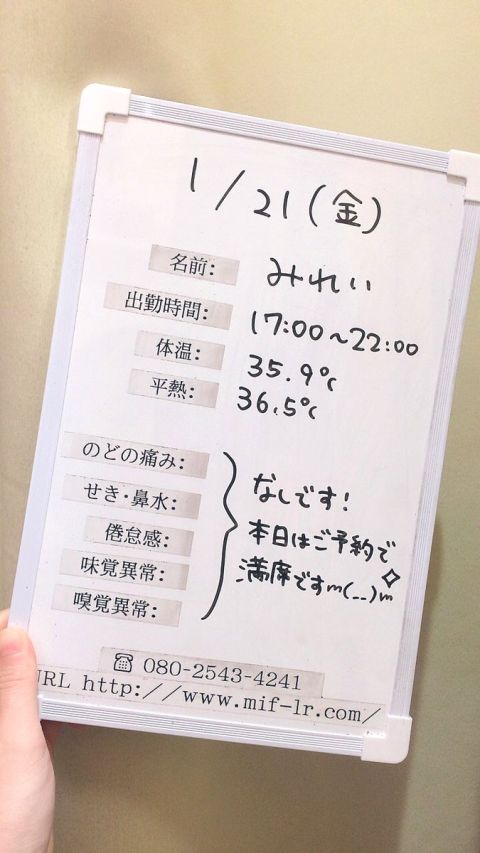 1/21(金)
名前: みれい
出勤時間: 17:00~22:00
体温: 35.9℃
平熱: 36.5℃
のどの痛み:
せき・鼻水:
倦怠感:
味覚異常:
嗅覚異常:
なしです!
本日はご予約で
満席ですm(_ _)m
☎ 080-2543-4241
URL http://www.mif-lr.com/